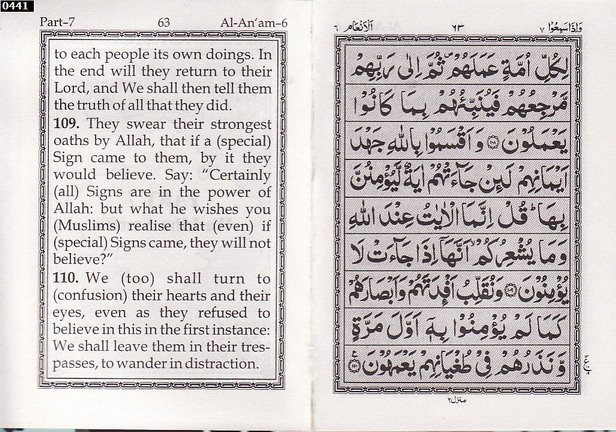 0441
Part-7 63 Al-An'am-6
to each people its own doings. In
the end will they return to their
Lord, and We shall then tell them
the truth of all that they did.
109. They swear their strongest
oaths by Allah, that if a (special)
Sign came to them, by it they
would believe. Say: “Certainly
(all) Signs are in the power of
Allah: but what he wishes you
(Muslims) realise that (even) if
(special) Signs came, they will not
believe?”
110. We (too) shall turn to
(confusion) their hearts and their
eyes, even as they refused to
believe in this in the first instance:
We shall leave them in their tres-
passes, to wander in distraction.
وَاِذَا سَمِعُوْا ٧ ٦٣ اَلْاَنْعَام ٦
لِكُلِّ اُمَّةٍ عَمَلَهُمْ ثُمَّ اِلٰى رَبِّهِمْ
مَّرْجِعُهُمْ فَيُنَبِّئُهُمْ بِمَا كَانُوْا
يَعْمَلُوْنَ ۝١٠٨ وَاَقْسَمُوْا بِاللّٰهِ جَهْدَ
اَيْمَانِهِمْ لَئِنْ جَآءَتْهُمْ اٰيَةٌ لَّيُؤْمِنُنَّ
بِهَا ؕ قُلْ اِنَّمَا الْاٰيٰتُ عِنْدَ اللّٰهِ
وَمَا يُشْعِرُكُمْ اَنَّهَاۤ اِذَا جَآءَتْ لَا
يُؤْمِنُوْنَ ۝١٠٩ وَنُقَلِّبُ اَفْـِٕدَتَهُمْ وَاَبْصَارَهُمْ
كَمَا لَمْ يُؤْمِنُوْا بِهٖۤ اَوَّلَ مَرَّةٍ
وَّنَذَرُهُمْ فِيْ طُغْيَانِهِمْ يَعْمَهُوْنَ ۝١١٠
منزل ٢